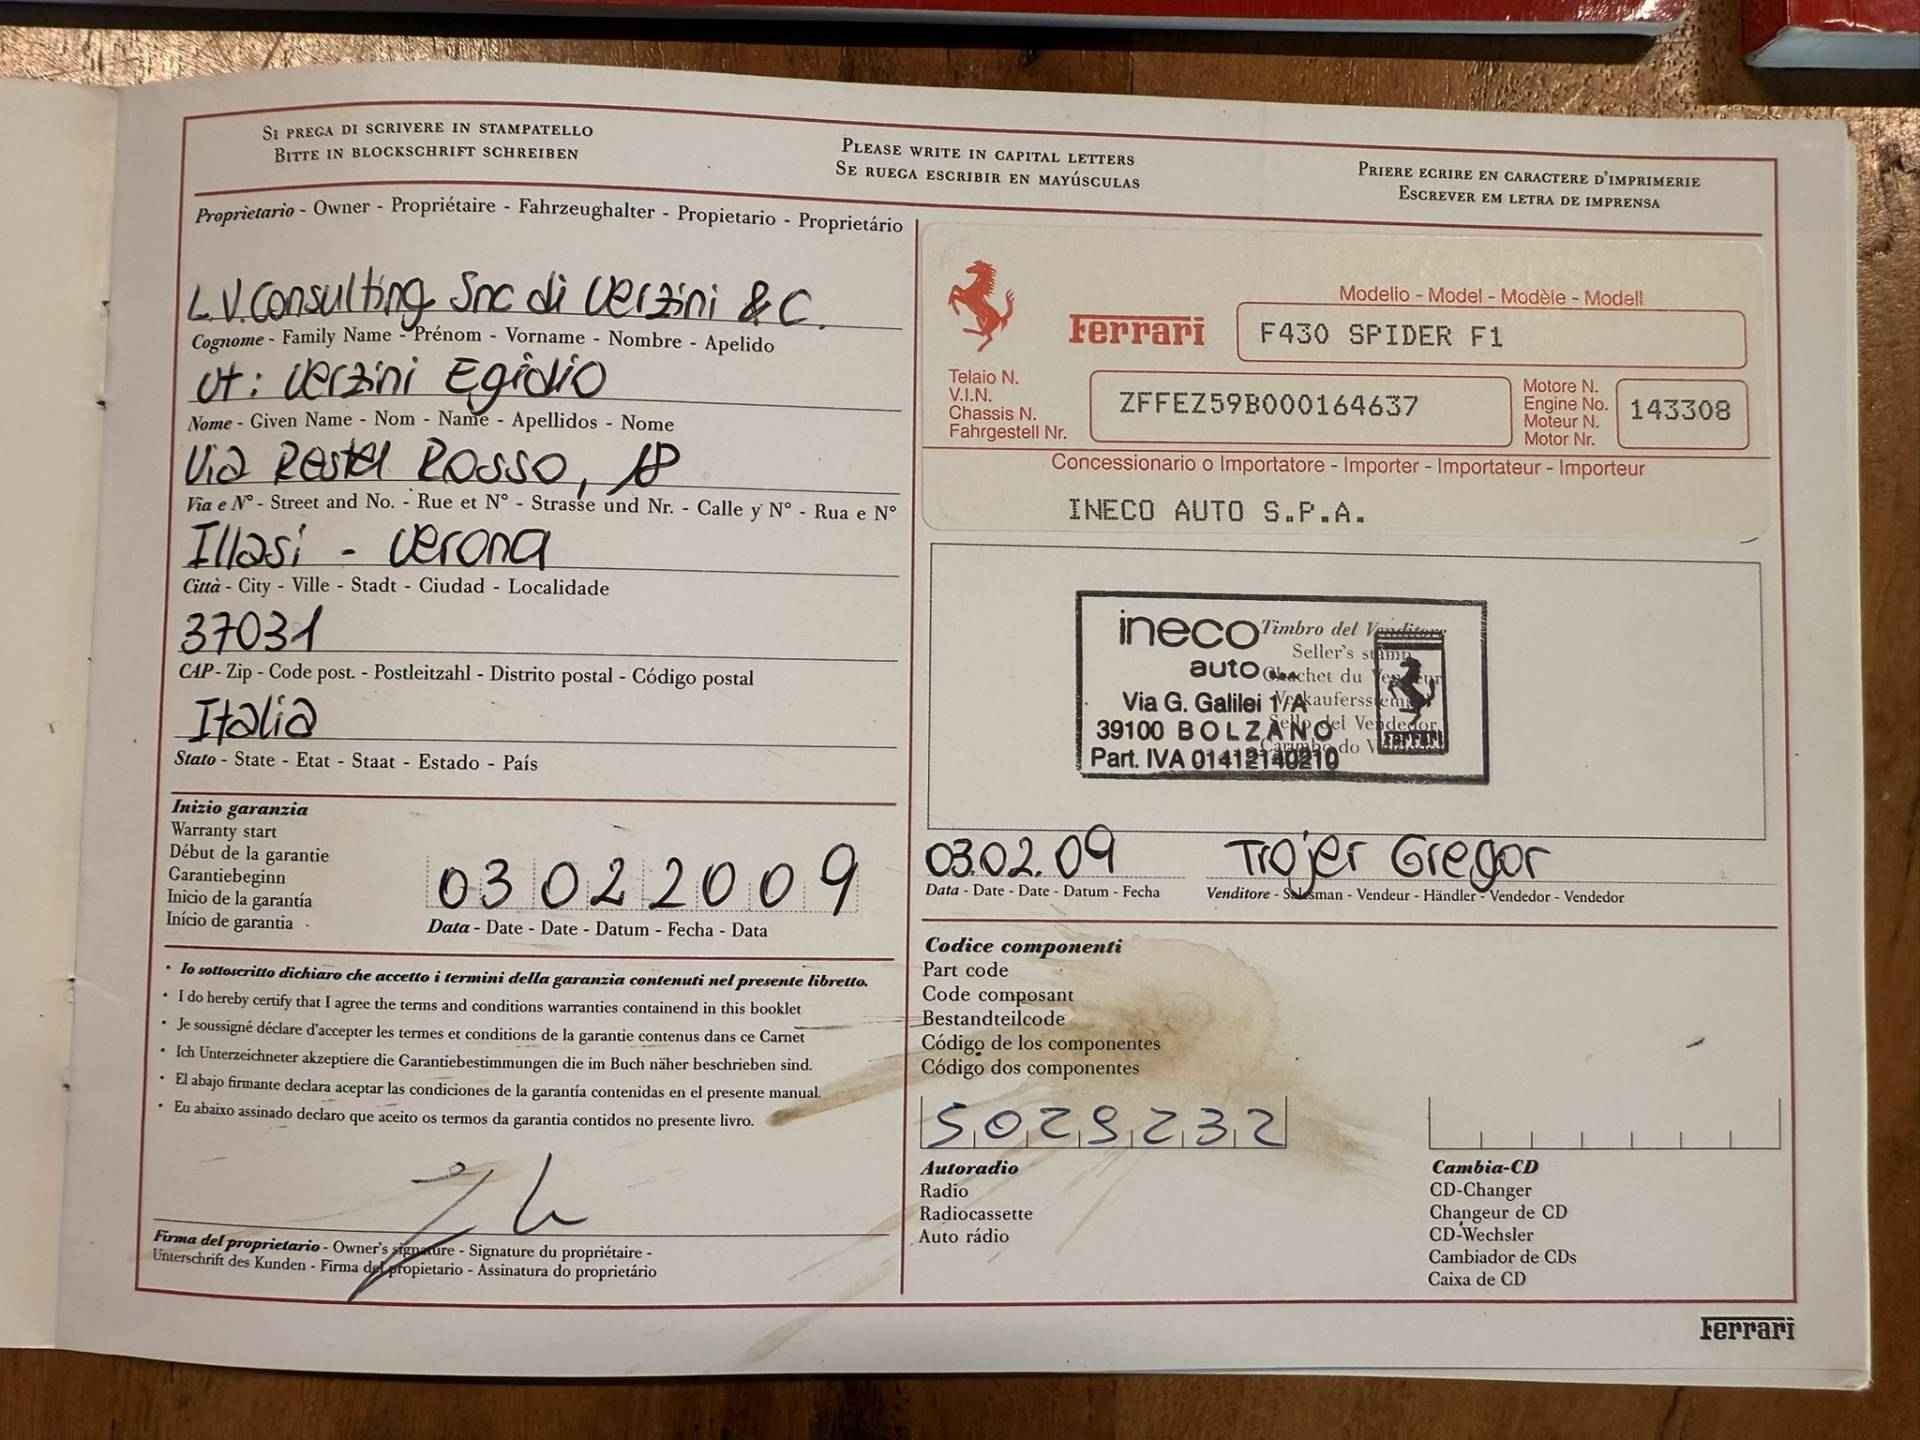 Si prega di scrivere in stampatello
Bitte in blockschrift schreiben
Please write in capital letters
Se ruega escribir en mayúsculas
Priere ecrire en caractere d'imprimerie
Escrever em letra de imprensa
Proprietario - Owner - Propriétaire - Fahrzeughalter - Propietario - Proprietário
L.V. Consulting Snc di Verzini & C.
Cognome - Family Name - Prénom - Vorname - Nombre - Apelido
ut: Verzini Egidio
Nome - Given Name - Nom - Name - Apellidos - Nome
Via Restel Rosso, 18
Via e N° - Street and No. - Rue et N° - Strasse und Nr. - Calle y N° - Rua e N°
Illasi - Verona
Città - City - Ville - Stadt - Ciudad - Localidade
37031
CAP - Zip - Code post. - Postleitzahl - Distrito postal - Código postal
Italia
Stato - State - Etat - Staat - Estado - País
Inizio garanzia
Warranty start
Début de la garantie
Garantiebeginn
Inicio de la garantía
Início de garantia
03 02 2009
Data - Date - Date - Datum - Fecha - Data
• Io sottoscritto dichiaro che accetto i termini della garanzia contenuti nel presente libretto.
• I do hereby certify that I agree the terms and conditions warranties containend in this booklet
• Je soussigné déclare d'accepter les termes et conditions de la garantie contenus dans ce Carnet
• Ich Unterzeichneter akzeptiere die Garantiebestimmungen die im Buch näher beschrieben sind.
• El abajo firmante declara aceptar las condiciones de la garantía contenidas en el presente manual.
• Eu abaixo assinado declaro que aceito os termos da garantia contidos no presente livro.
Firma del proprietario - Owner's signature - Signature du propriétaire -
Unterschrift des Kunden - Firma del propietario - Assinatura do proprietário
Modello - Model - Modèle - Modell
Ferrari
F430 SPIDER F1
Telaio N.
V.I.N.
Chassis N.
Fahrgestell Nr.
ZFFEZ59B000164637
Motore N.
Engine No.
Moteur N.
Motor Nr.
143308
Concessionario o Importatore - Importer - Importateur - Importeur
INECO AUTO S.P.A.
ineco
auto
Via G. Galilei 1/A
39100 BOLZANO
Part. IVA 01412140210
Ferrari
Timbro del Venditore
Seller's stamp
Cachet du Vendeur
Verkaufersstempel
Sello del Vendedor
Carimbo do
03.02.09
Data - Date - Date - Datum - Fecha
Trojer Gregor
Venditore - Salesman - Vendeur - Händler - Vendedor - Vendedor
Codice componenti
Part code
Code composant
Bestandteilcode
Código de los componentes
Código dos componentes
5029232
Autoradio
Radio
Radiocassette
Auto rádio
Cambia-CD
CD-Changer
Changeur de CD
CD-Wechsler
Cambiador de CDs
Caixa de CD
Ferrari